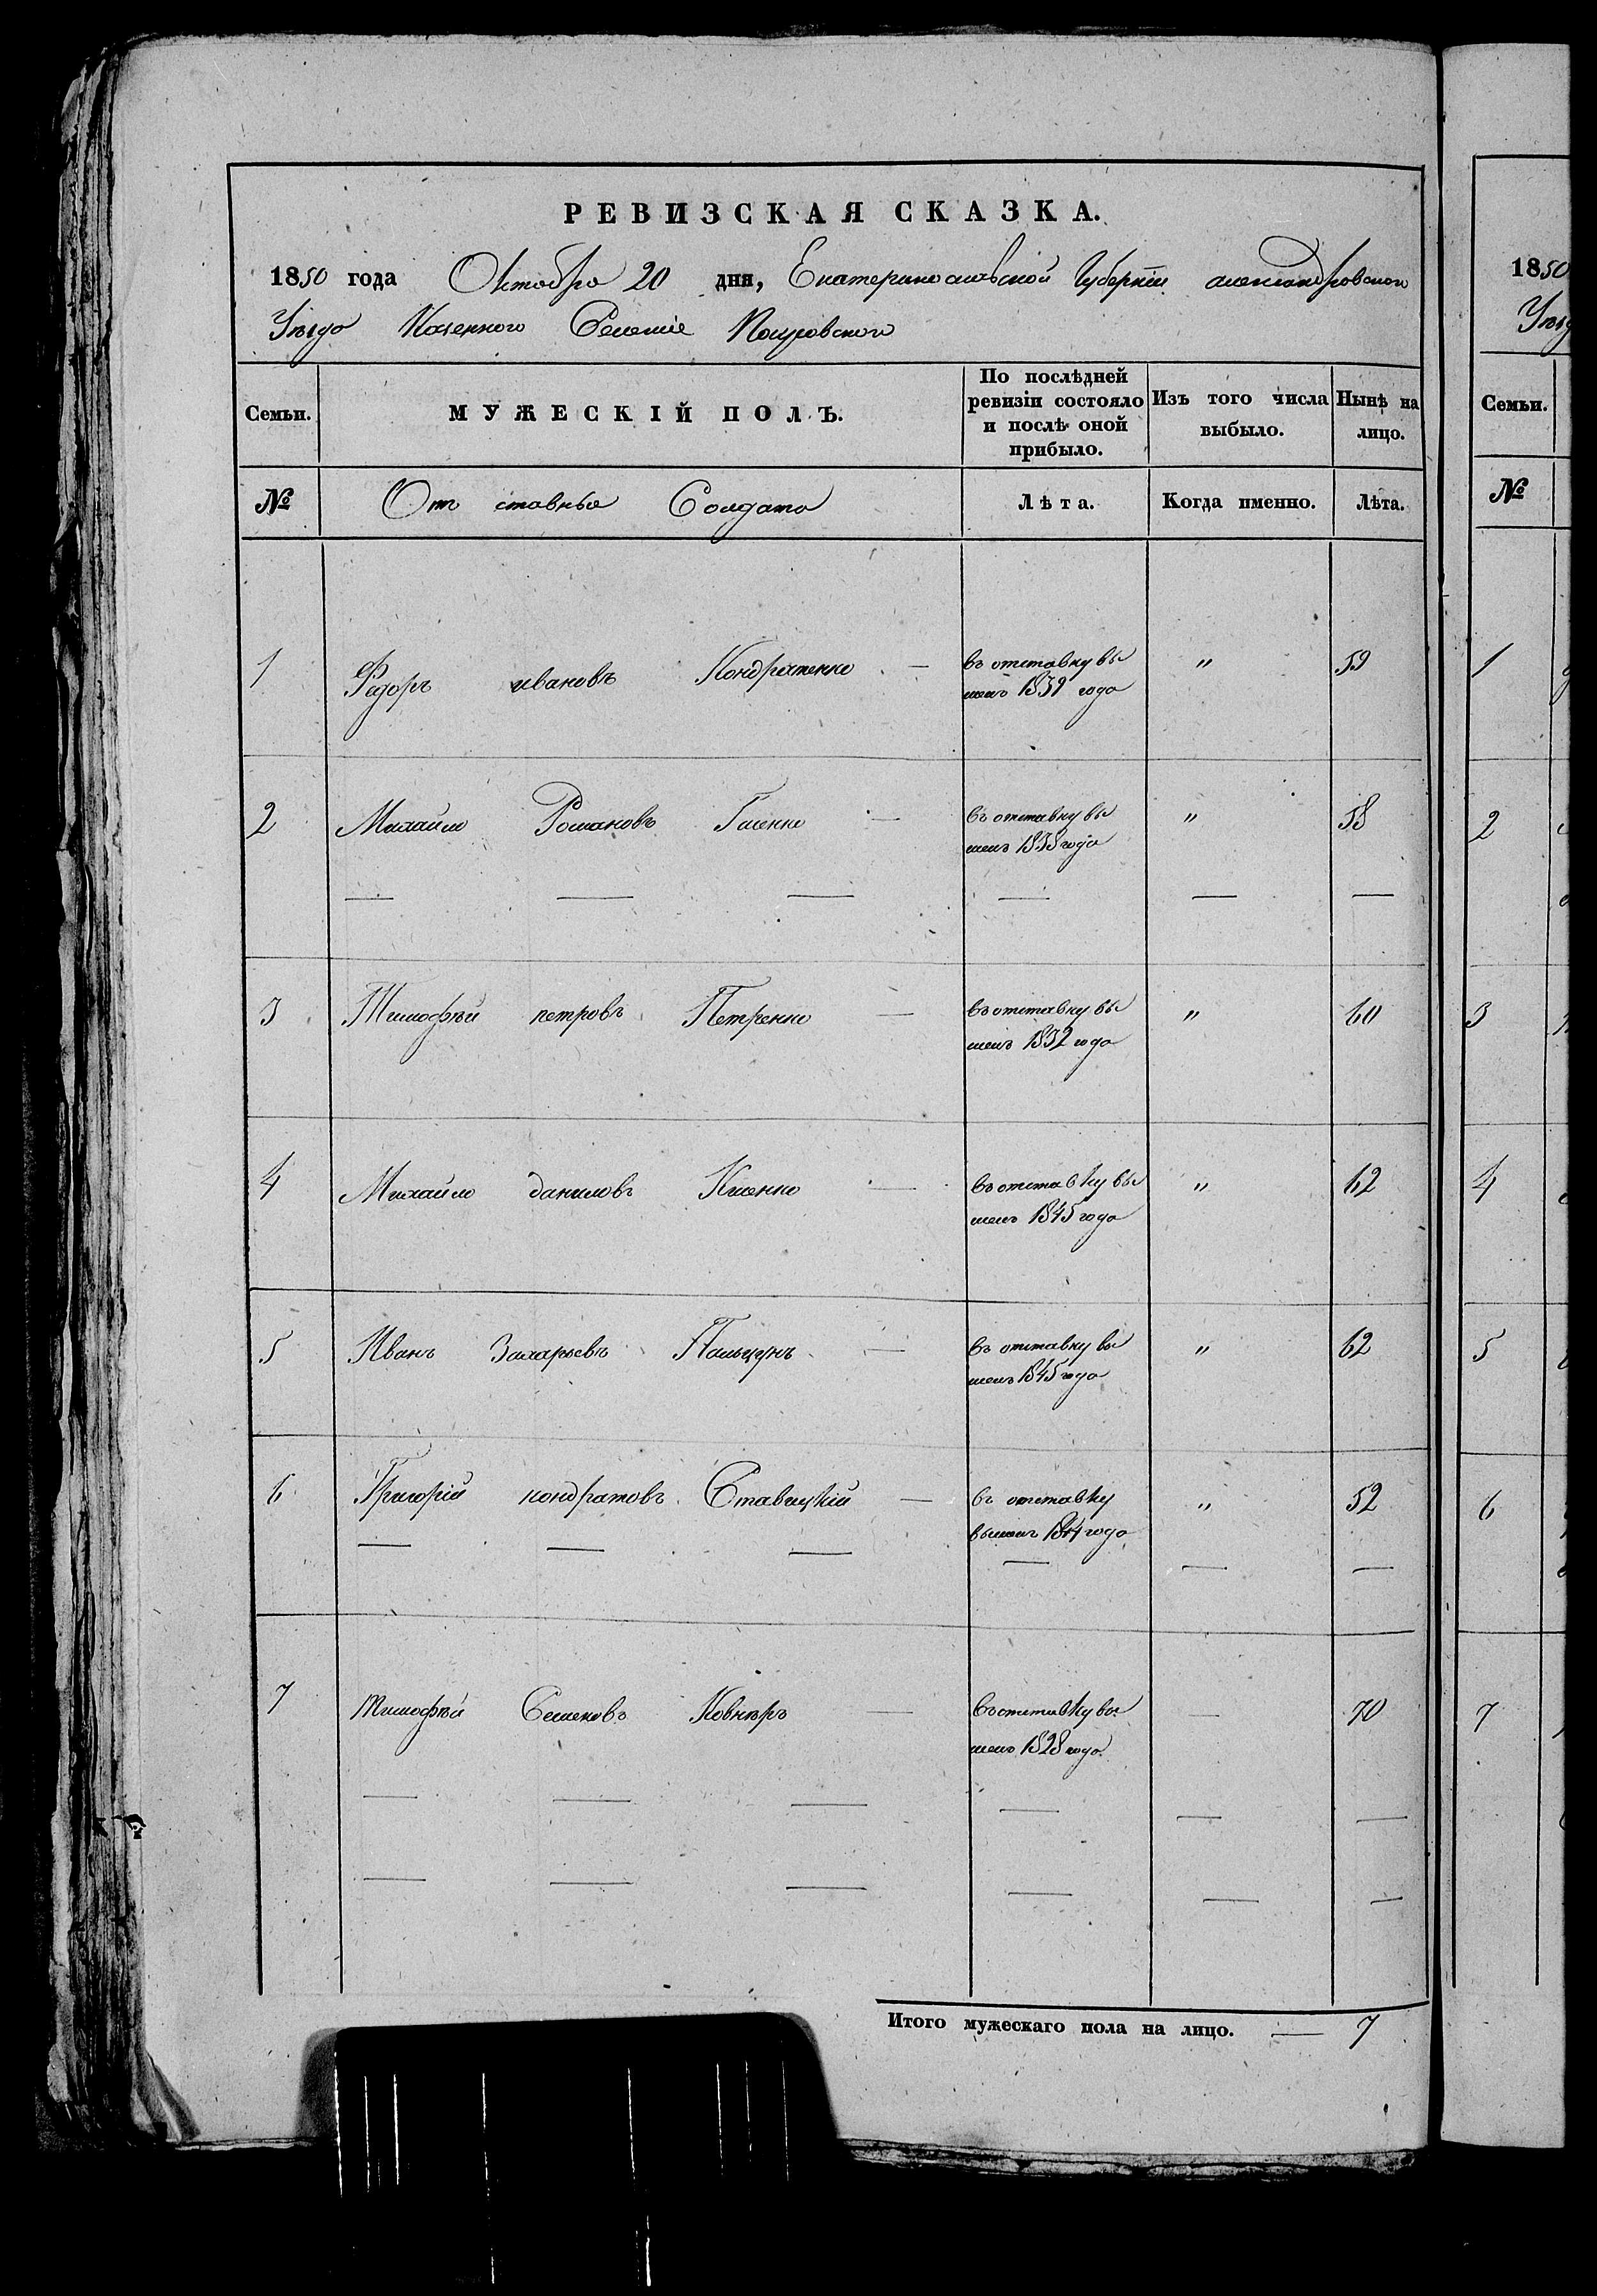 РЕВИЗСКАЯ СКАЗКА.
1850 года Октября 20 дня, Екатеринославской Губерніи александровского
Уезда Казенного Селенія Покровского
Семьи. МУЖЕСКІЙ ПОЛЪ. По послѣдней ревизіи состояло и послѣ оной прибыло. Изъ того числа выбыло. Нынѣ на лицо.
№ Отъ ставные Солдата Лѣта. Когда именно. Лѣта.
1 Федоръ ивановъ Кондратенко — въ отставку вы " 59
шелъ 1839 года
2 Михайло Романовъ — въ отставку вы " 58
шелъ 1838 года
3 Тимофѣй петровъ Петренко — въ отставку вы " 60
шелъ 1832 года
4 Михайло даниловъ — въ отставку вы " 62
шелъ 1845 года
5 Иванъ Захарьевъ Пальцунъ — въ отставку вы " 62
шелъ 1845 года
6 Григорій кондратовъ Ставицкій — въ отставку " 52
вышелъ 1844 года
7 Тимофѣй Семеновъ Ковнѣръ — въ отставку вы — 70
шелъ 1828 года
Итого мужескаго пола на лицо. — 7
1850
Семьи.
№
1
2
3
4
5
6
7